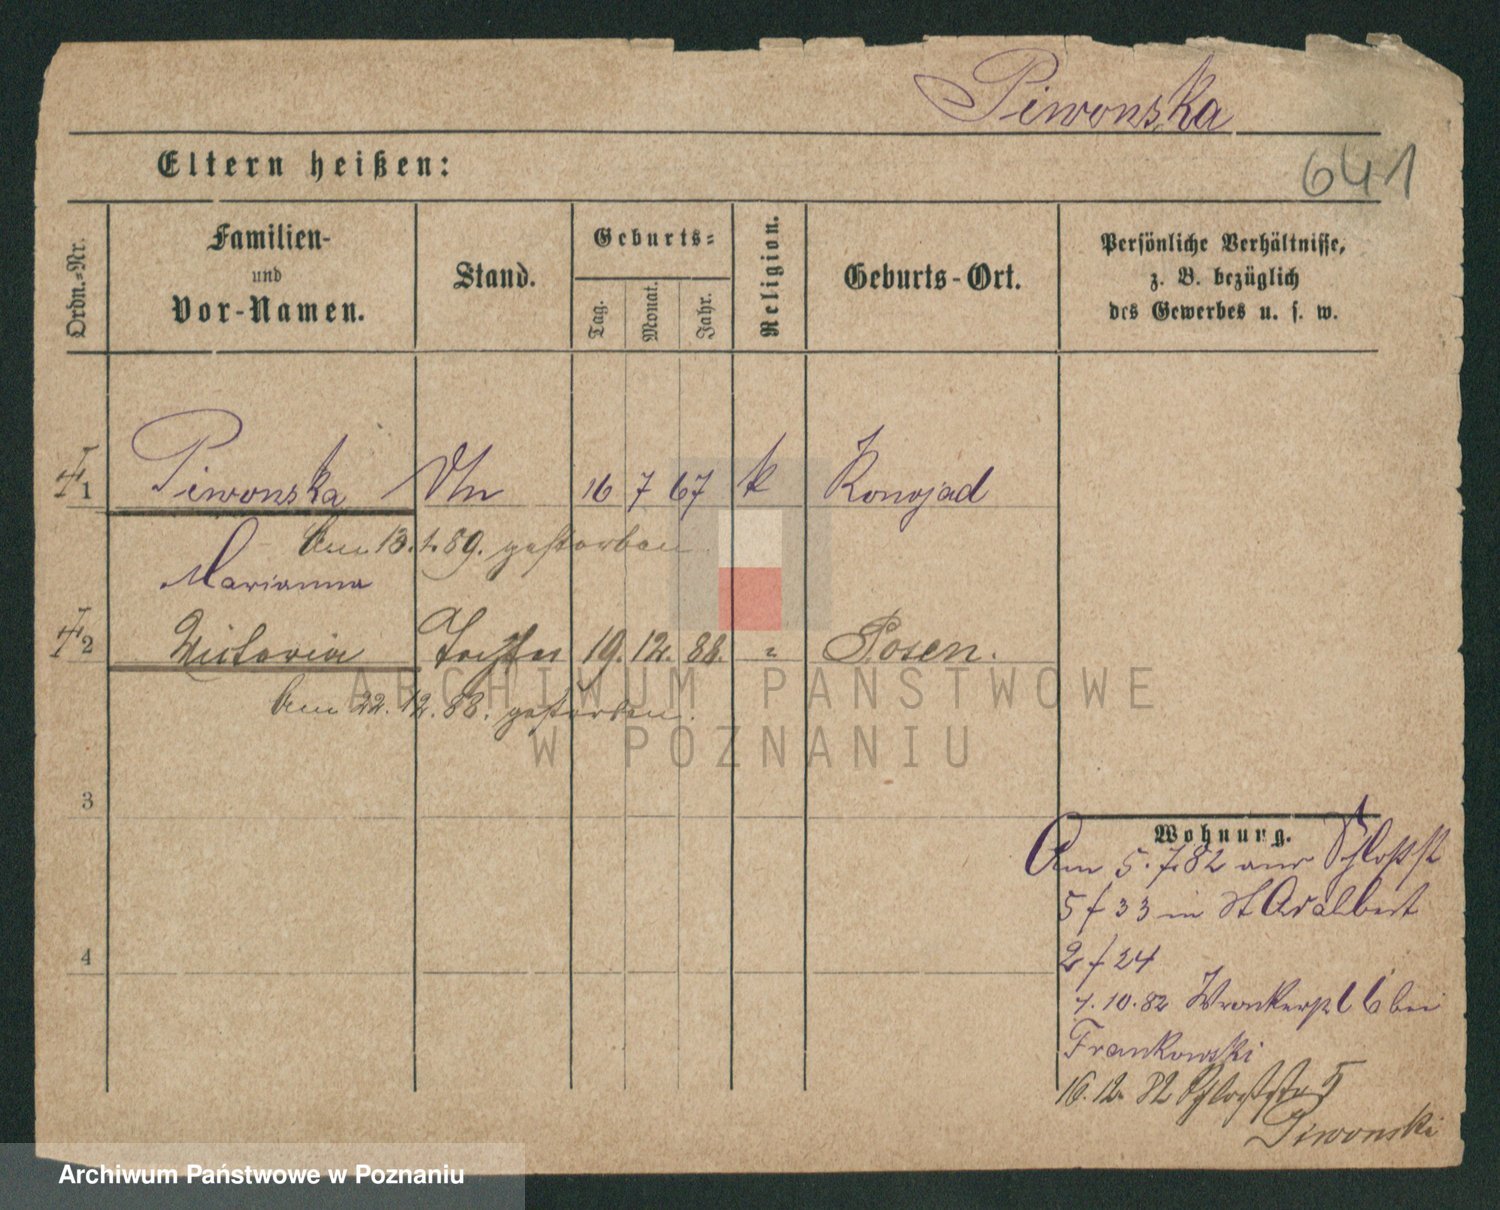 Piwonska
641
Eltern heißen:
Ordn.-Nr.
Familien-
und
Vor-Namen.
Stand.
Geburts-
Tag.
Monat.
Jahr.
Religion.
Geburts-Ort.
Persönliche Verhältnisse,
z. B. bezüglich
des Gewerbes u. s. w.
1 Piwonska 16 7 67 k Konojad
Am 13. 1. 89. gestorben.
Marianna
2 Victoria Tochter 19. 12. 88. " Posen.
Am 22. 12. 88. gestorben.
3
4
Wohnung.
Am 5. 7. 82 aus Schloßst
5 f 33 in St Adalbert
2 f 24
7. 10. 82 Wronkerpl 6 bei
Frankowski
16. 12. 82 Schloßstr 5
Piwonski
ARCHIWUM PAŃSTWOWE
W POZNANIU
Archiwum Państwowe w Poznaniu